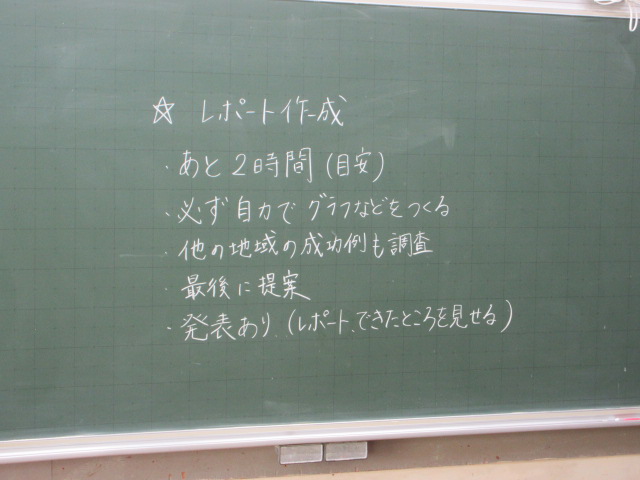 ☆ レポート作成
・あと2時間(目安)
・必ず自力でグラフなどをつくる
・他の地域の成功例も調査
・最後に提案
・発表あり.(レポート、できたところを見せる)